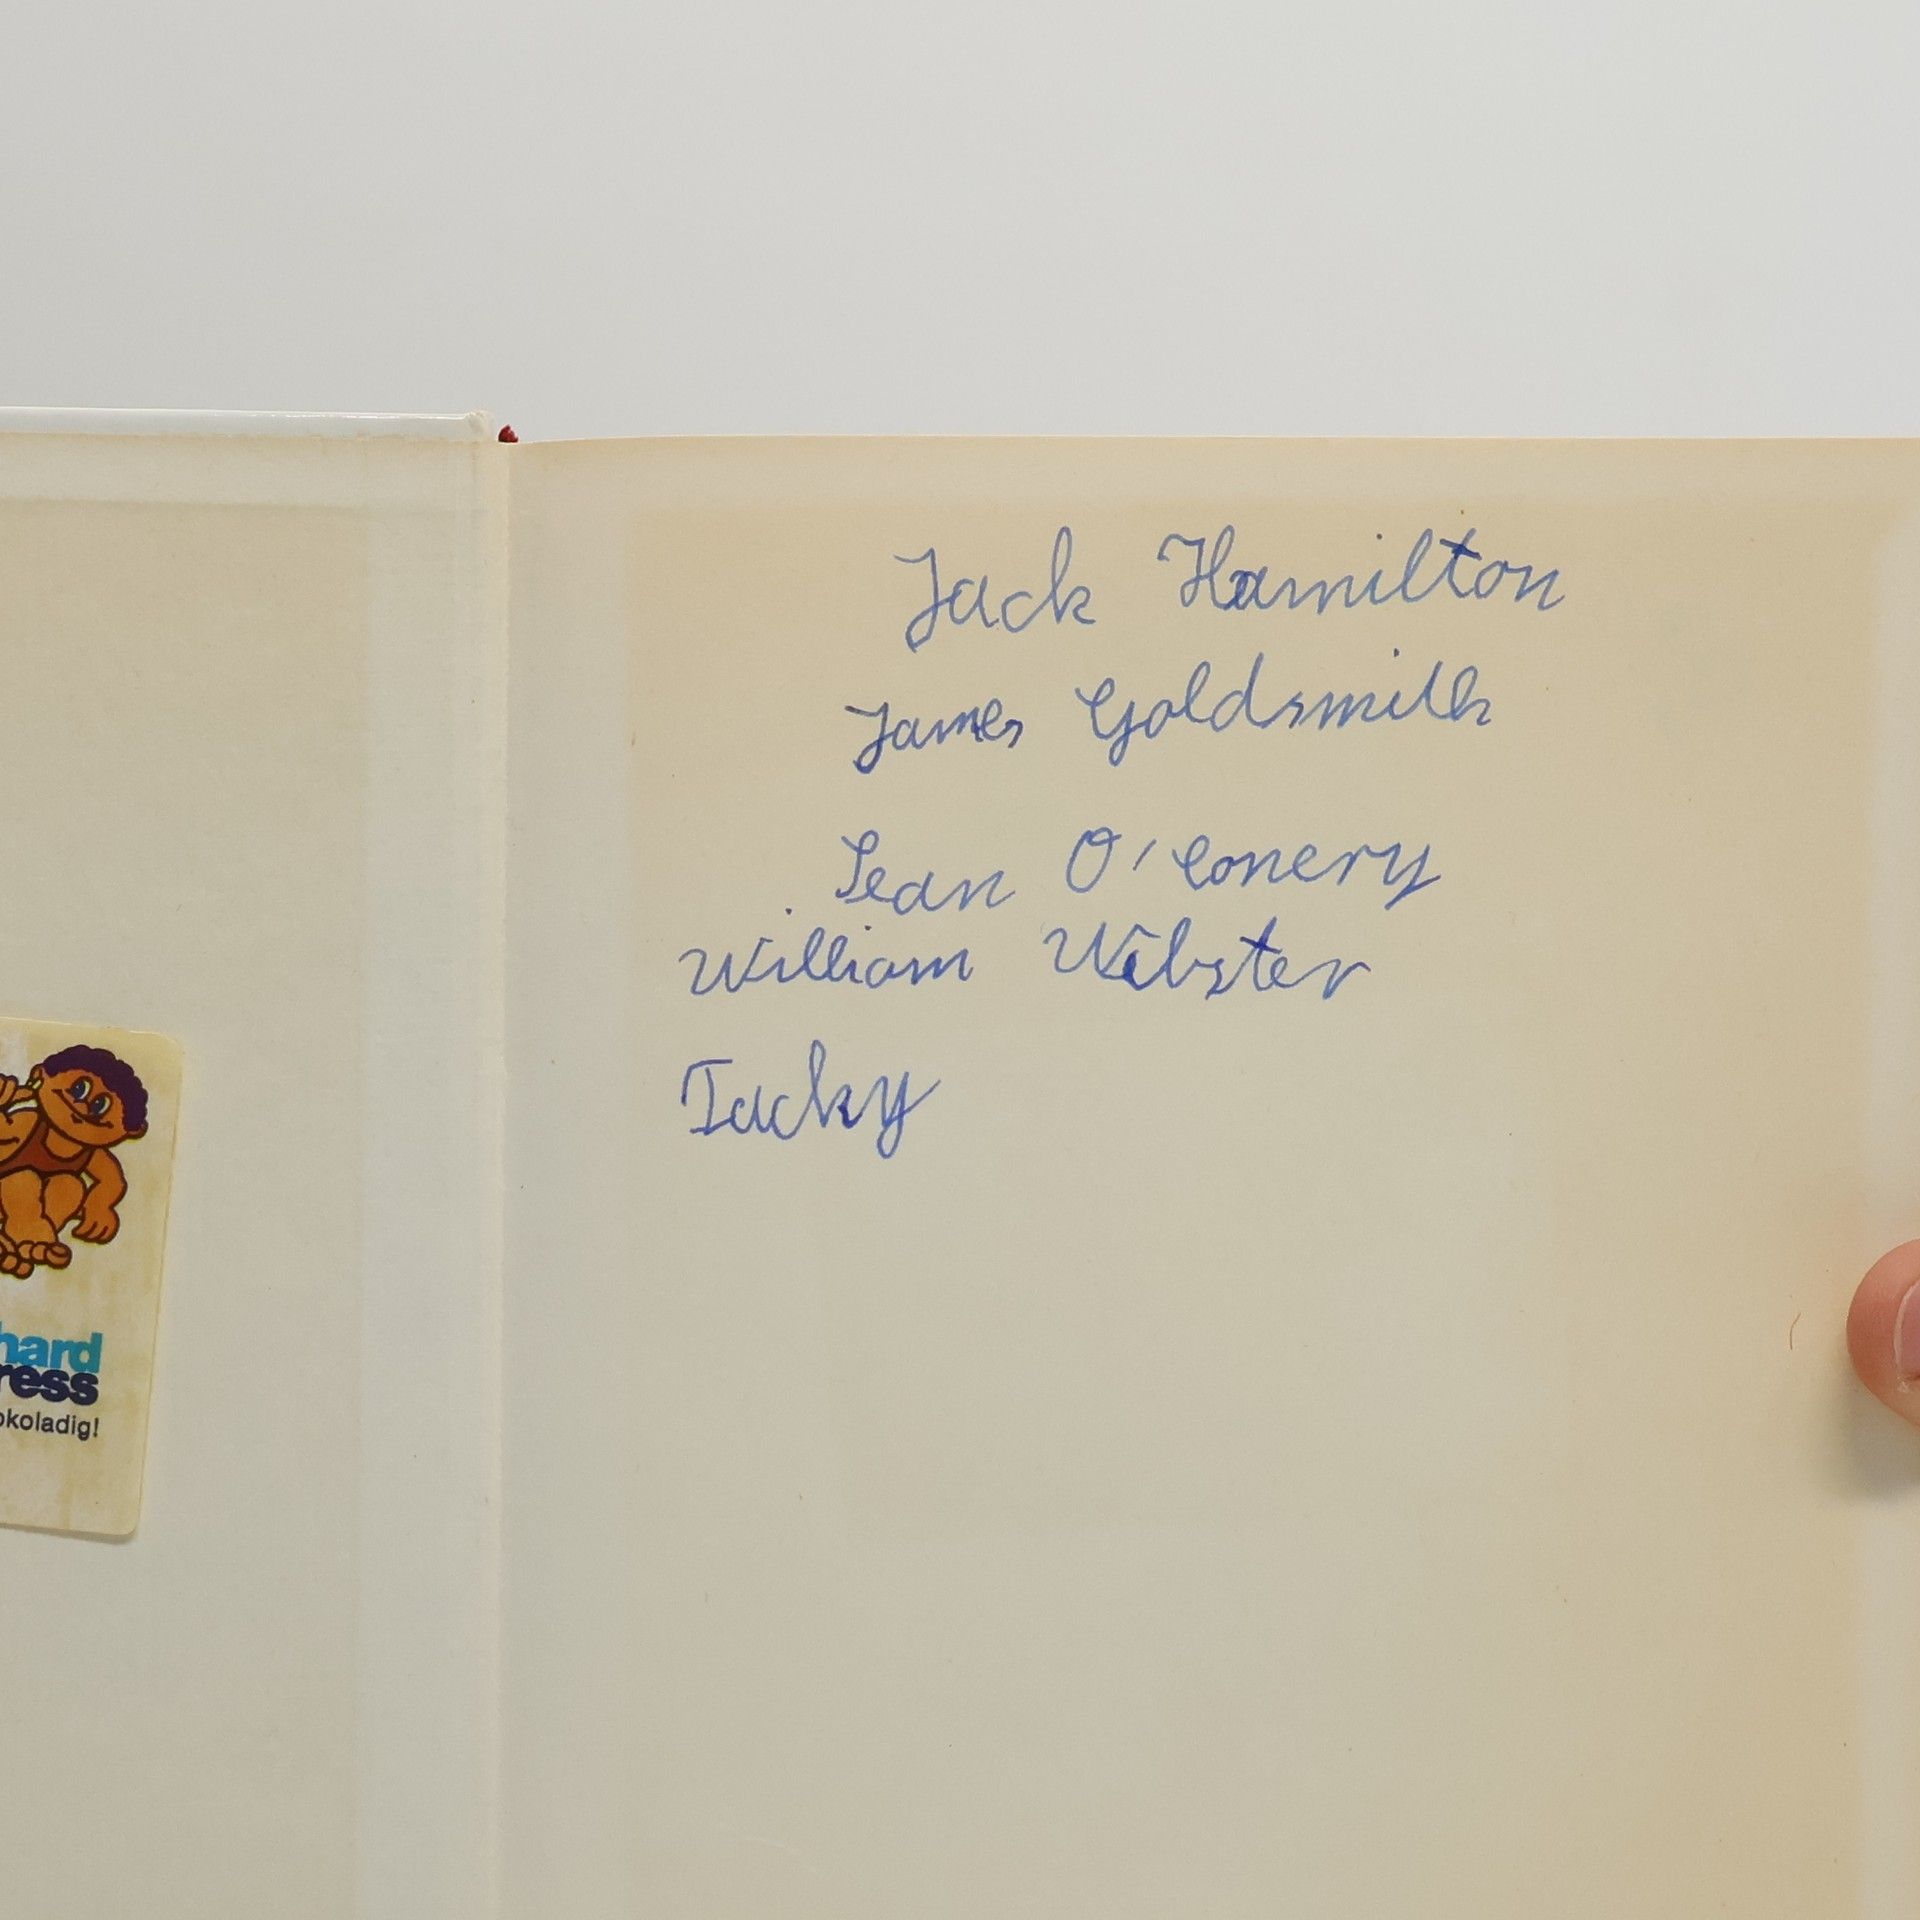 Jack Hamilton
James Goldsmith
Sean O'Conery
William Webster
Tacky
hard
ress
okoladig!